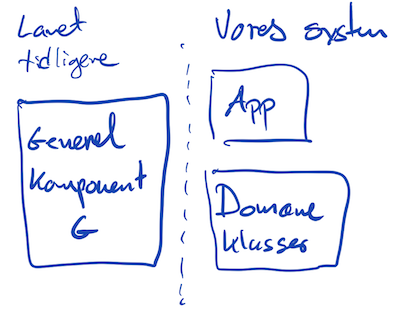 Lavet
tidligere
Generel
Komponent
G
Vores system
App
Domæne
klasser